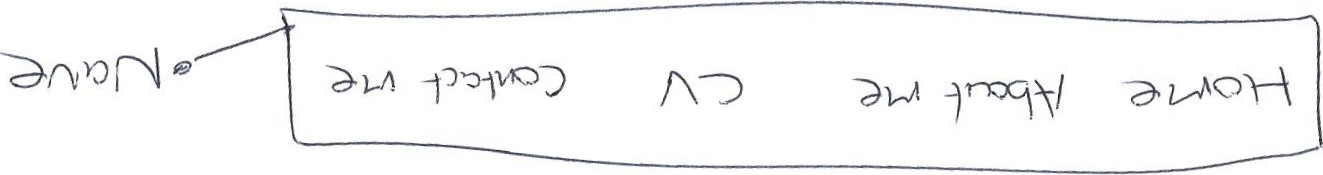 Home About me CV Contact me
Nave